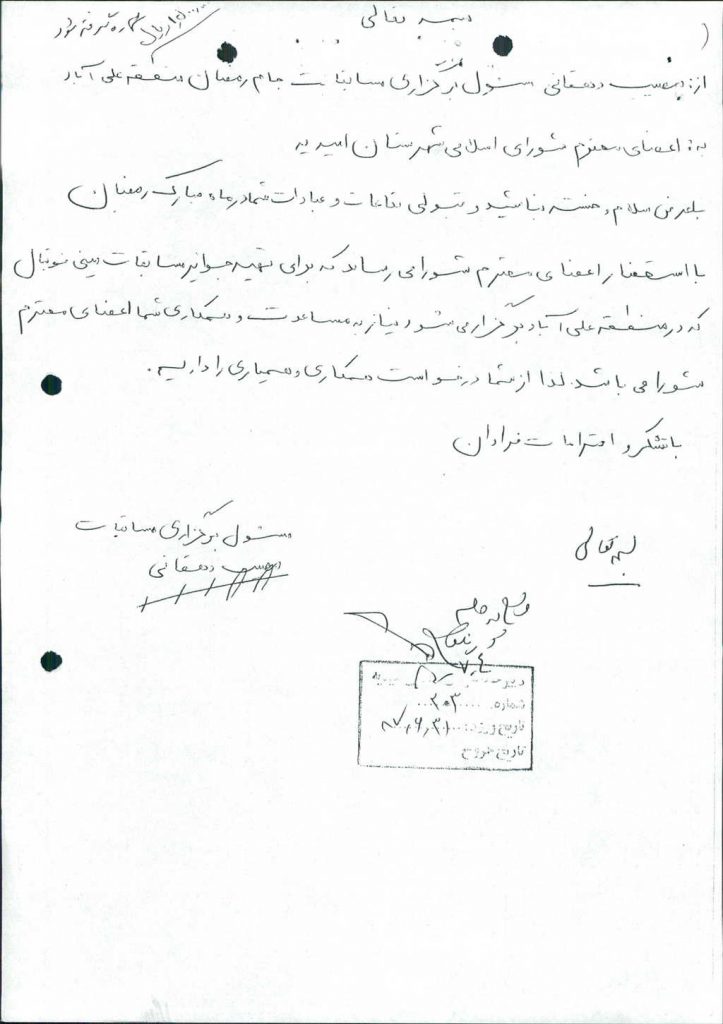 بسمه تعالی
ریال در نظر گرفته شود
از: دهقانی مسئول برگزاری مسابقات جام رمضان منطقه علی آباد
به: اعضای محترم شورای اسلامی شهرستان امیدیه
با عرض سلام و خسته نباشید و قبولی طاعات و عبادات شما در ماه مبارک رمضان
با استحضار اعضای محترم شورا می رساند که برای تهیه جوایز مسابقات مینی فوتبال
که در منطقه علی آباد برگزار می شود نیاز به مساعدت و همکاری شما اعضای محترم
شورا می باشد. لذا از شما درخواست همکاری و همیاری را داریم.
با تشکر و احترامات فراوان
مسئول برگزاری مسابقات
دهقانی
بسمه تعالی
شماره ۳۰۳
تاریخ ورود: ۸۷,۶,۳۱
تاریخ خروج